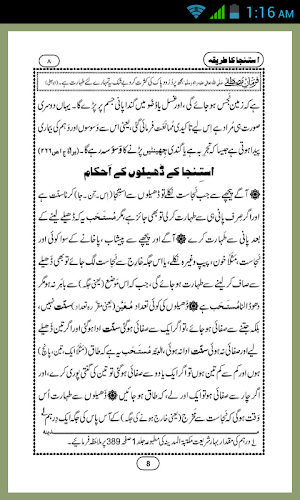 1:16 AM
استنجا کا طریقہ
٨
ہے کہ زمین نجس ہو جائے گی، اور غسل یا وُضو میں گندا پانی جسم پر پڑے گا۔ یہاں دوسری
صورت ہی مُراد ہے اِس لیے تاکیدی مُمانَعَت فرمائی گئی، یعنی اس سے وَسوَسوں اور وَہم کی بیماری
پیدا ہوتی ہے جیسا کہ تجرِبہ ہے یا گندی چھینٹیں پڑنے کا وَسوَسہ رہے گا۔
استنجا کے ڈھیلوں کے اَحکام
آگے پیچھے سے جب نَجاست نکلے تو ڈھیلوں سے اِستِنجا کرنا سنّت ہے
اور اگر صِرف پانی ہی سے طہارت کرلی تو بھی جائز ہے مگر مُستَحَب یہ ہے کہ ڈھیلے لینے کے
بعد پانی سے طہارت کرے آگے اور پیچھے سے پیشاب، پاخانے کے سوا کوئی اور
نَجاست، مَثَلاً خون، پیپ وغیرہ نکلے، یا اس جگہ خارِج سے نَجاست لگ جائے تو بھی ڈھیلے
سے صاف کر لینے سے طہارت ہو جائے گی، جب کہ اس مَوضَع (یعنی جگہ) سے باہَر نہ ہو مگر
دھو ڈالنا مُستَحَب ہے ڈھیلوں کی کوئی تعداد مُعَیَّن (یعنی مقرّرہ تعداد) سنّت نہیں،
بلکہ جتنے سے صفائی ہو جائے، تو اگر ایک سے صفائی ہوگئی سنّت ادا ہوگئی اور اگر تین ڈھیلے
لیے اور صفائی نہ ہوئی سنّت ادا نہ ہوئی، البتّہ مُستَحَب یہ ہے کہ طاق (مَثَلاً ایک، تین، پانچ)
ہوں اور کم سے کم تین ہوں تو اگر ایک یا دو سے صفائی ہوگئی تو تین کی گنتی پوری کرے، اور
اگر چار سے صفائی ہو تو ایک اور لے، کہ طاق ہو جائیں ڈھیلوں سے طہارت اُس
وَقت ہوگی کہ نَجاست سے مَخرَج (یعنی خارج ہونے کی جگہ) کے آس پاس کی جگہ ایک دِرہم
دِرہم کی مقدار بہارِ شریعت مکتبۃ المدینہ کی مطبوعہ جلد 1 صفحہ 389 پر ملاحظہ فرمائیے۔
8